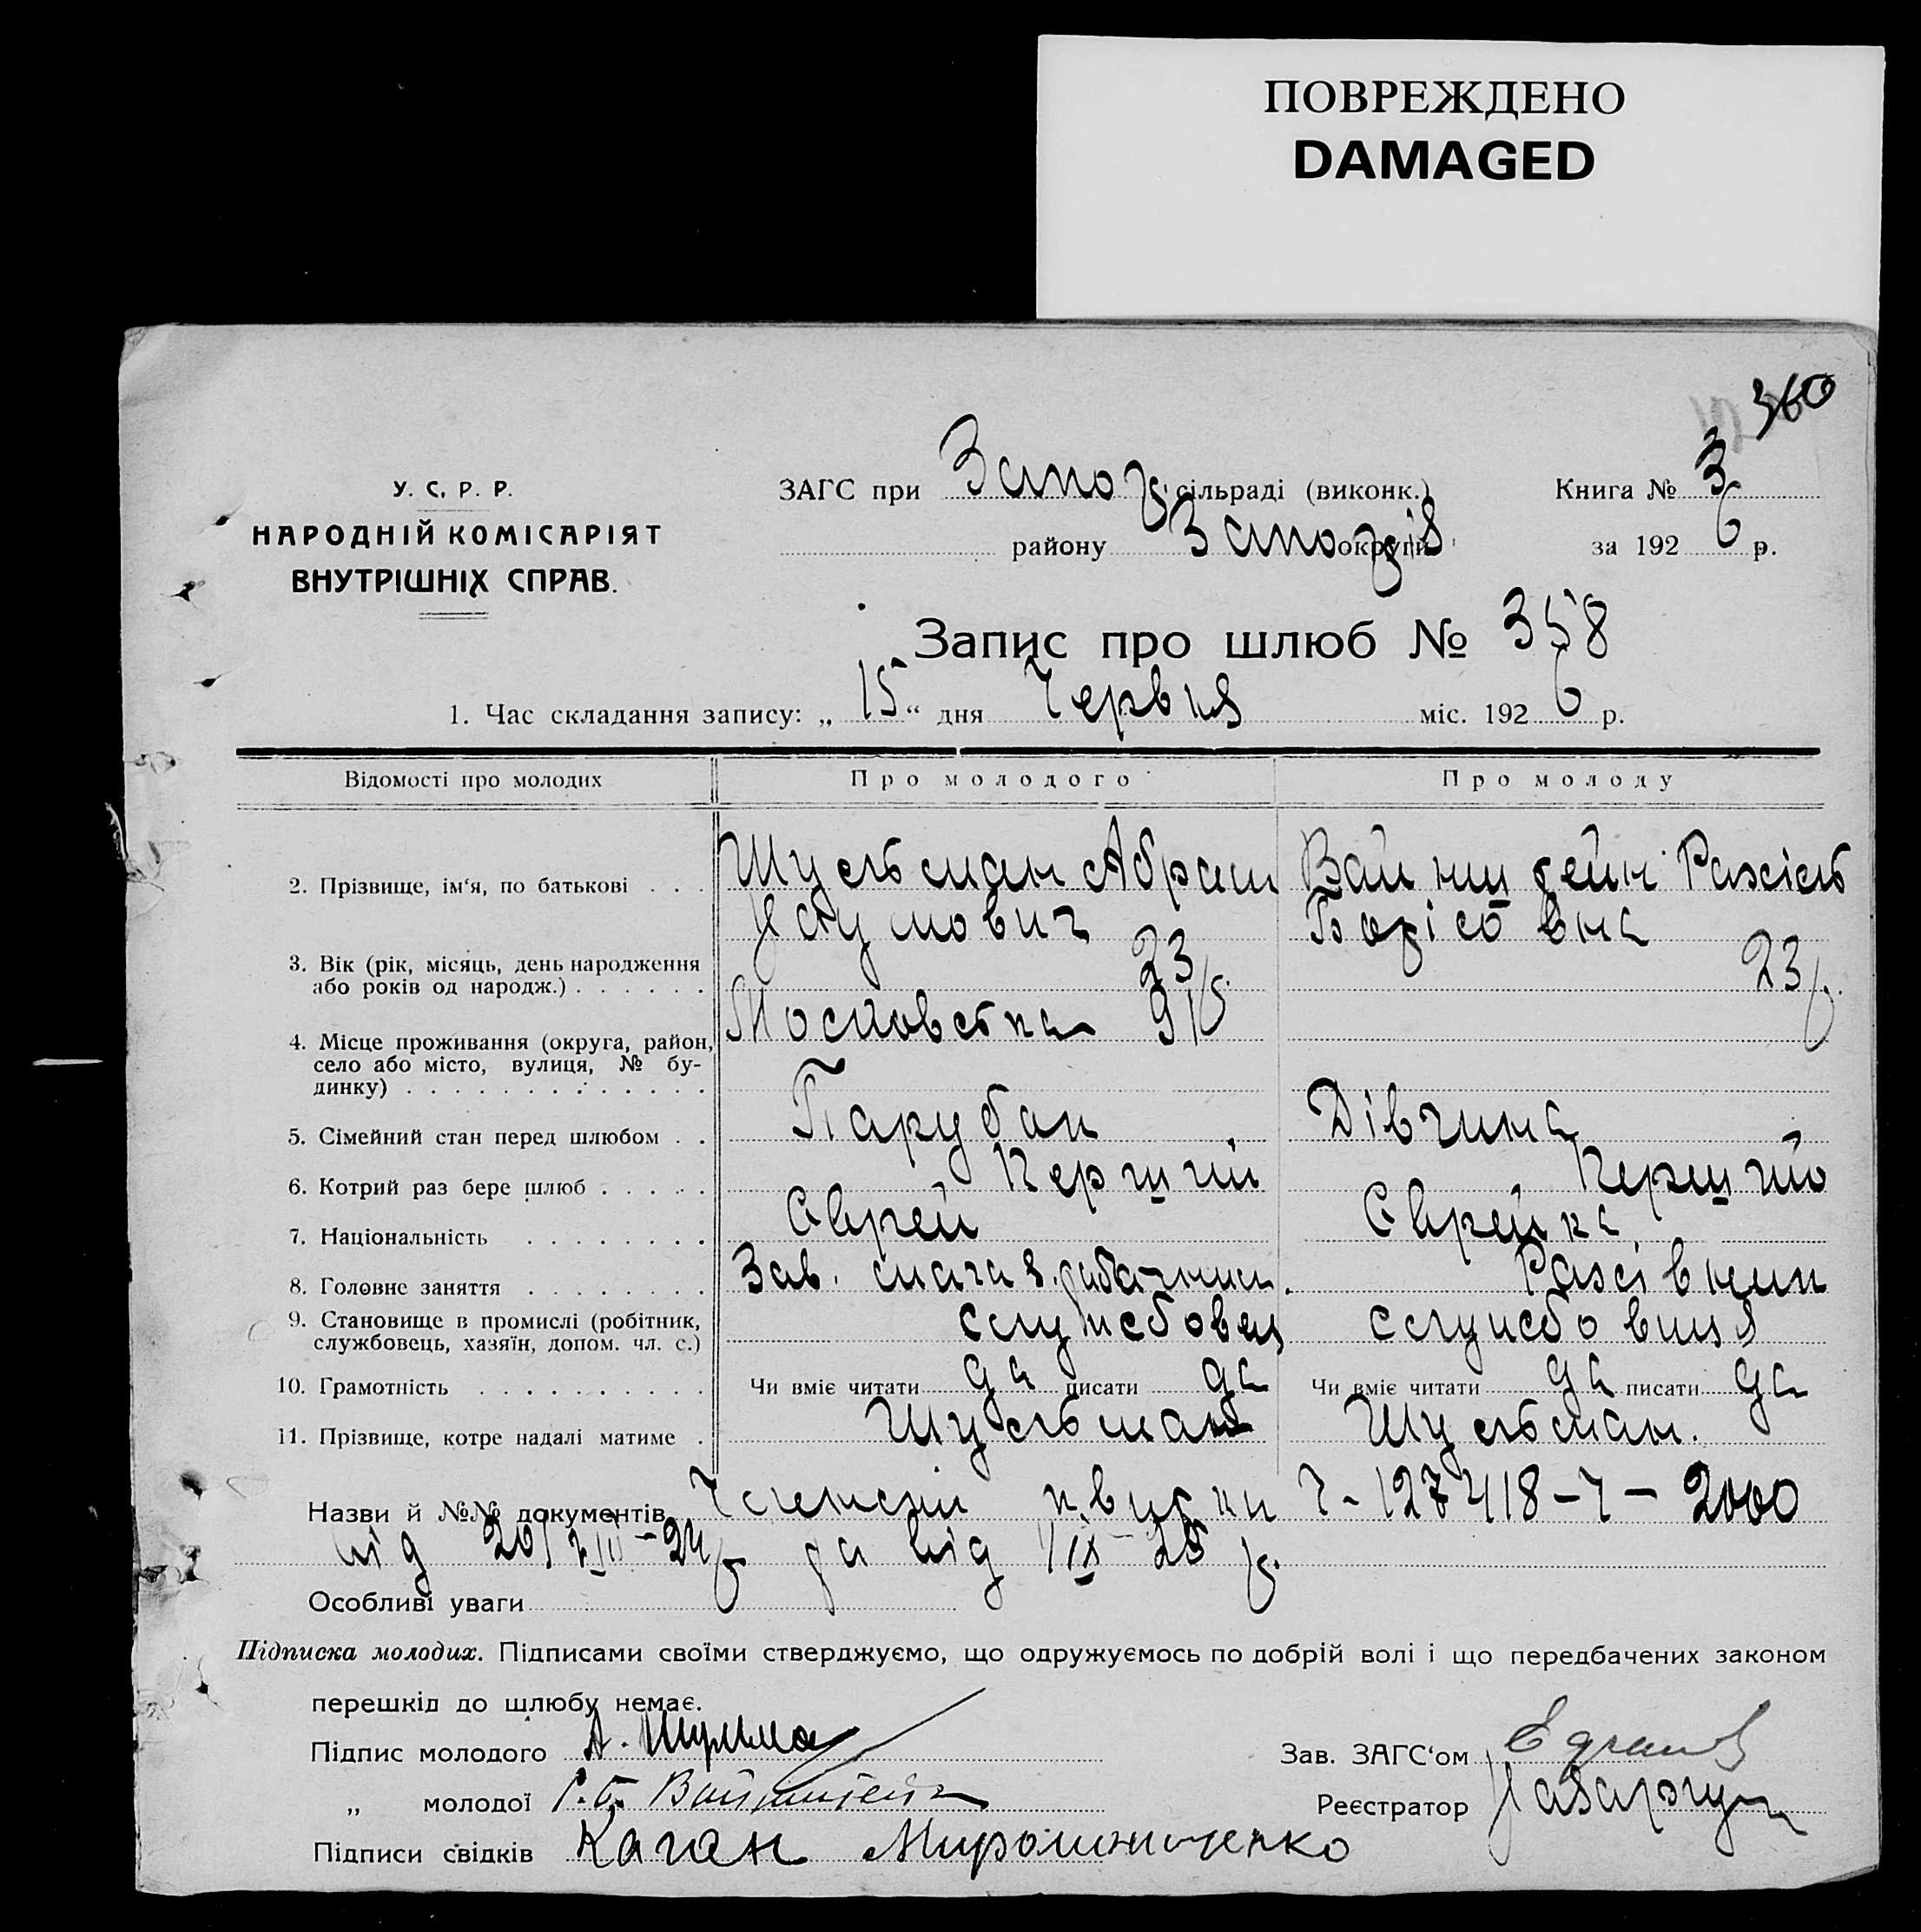 ПОВРЕЖДЕНО
DAMAGED
360
У. С. Р. Р.
НАРОДНІЙ КОМІСАРІЯТ
ВНУТРІШНІХ СПРАВ.
ЗАГС при Запор. сільраді (виконк.) Книга № 3
району Запоріз. округи за 1926 р.
Запис про шлюб № 358
1. Час складання запису: „15“ дня Червня міс. 1926 р.
Відомості про молодих Про молодого Про молоду
2. Прізвище, ім‘я, по батькові . . . Шульман Абрам Вайнштейн Рахіль
Наумович Борісовна
3. Вік (рік, місяць, день народження або років од народж.) . . . . . . 23 р. 23 р.
4. Місце проживання (округа, район, село або місто, вулиця, № будинку) . . . . . . . . . . . . . Московська
5. Сімейний стан перед шлюбом . . Парубок Дівчина
6. Котрий раз бере шлюб . . . . . Перший Перший
7. Національність . . . . . . . . Єврей Єврейка
8. Головне заняття . . . . . . . . Зав. Рахівник
9. Становище в промислі (робітник, службовець, хазяїн, допом. чл. с.) службовец службовиця
10. Грамотність . . . . . . . . . . Чи вміє читати да писати да Чи вміє читати да писати да
11. Прізвище, котре надалі матиме . Шульман Шульман.
Назви й №№ документів Членські квитки Ч-127418-Ч-2000
від 20/VIII-24 р. та від 1/IX-25 р.
Особливі уваги
Підписка молодих. Підписами своїми стверджуємо, що одружуємось по добрій волі і що передбачених законом
перешкід до шлюбу немає.
Підпис молодого А. Шульма Зав. ЗАГС‘ом
„ молодої Р. Б. Вайнштейн Реєстратор
Підписи свідків Каган Мирошниченко